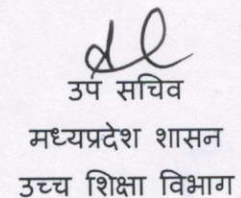 उप सचिव
मध्यप्रदेश शासन
उच्च शिक्षा विभाग